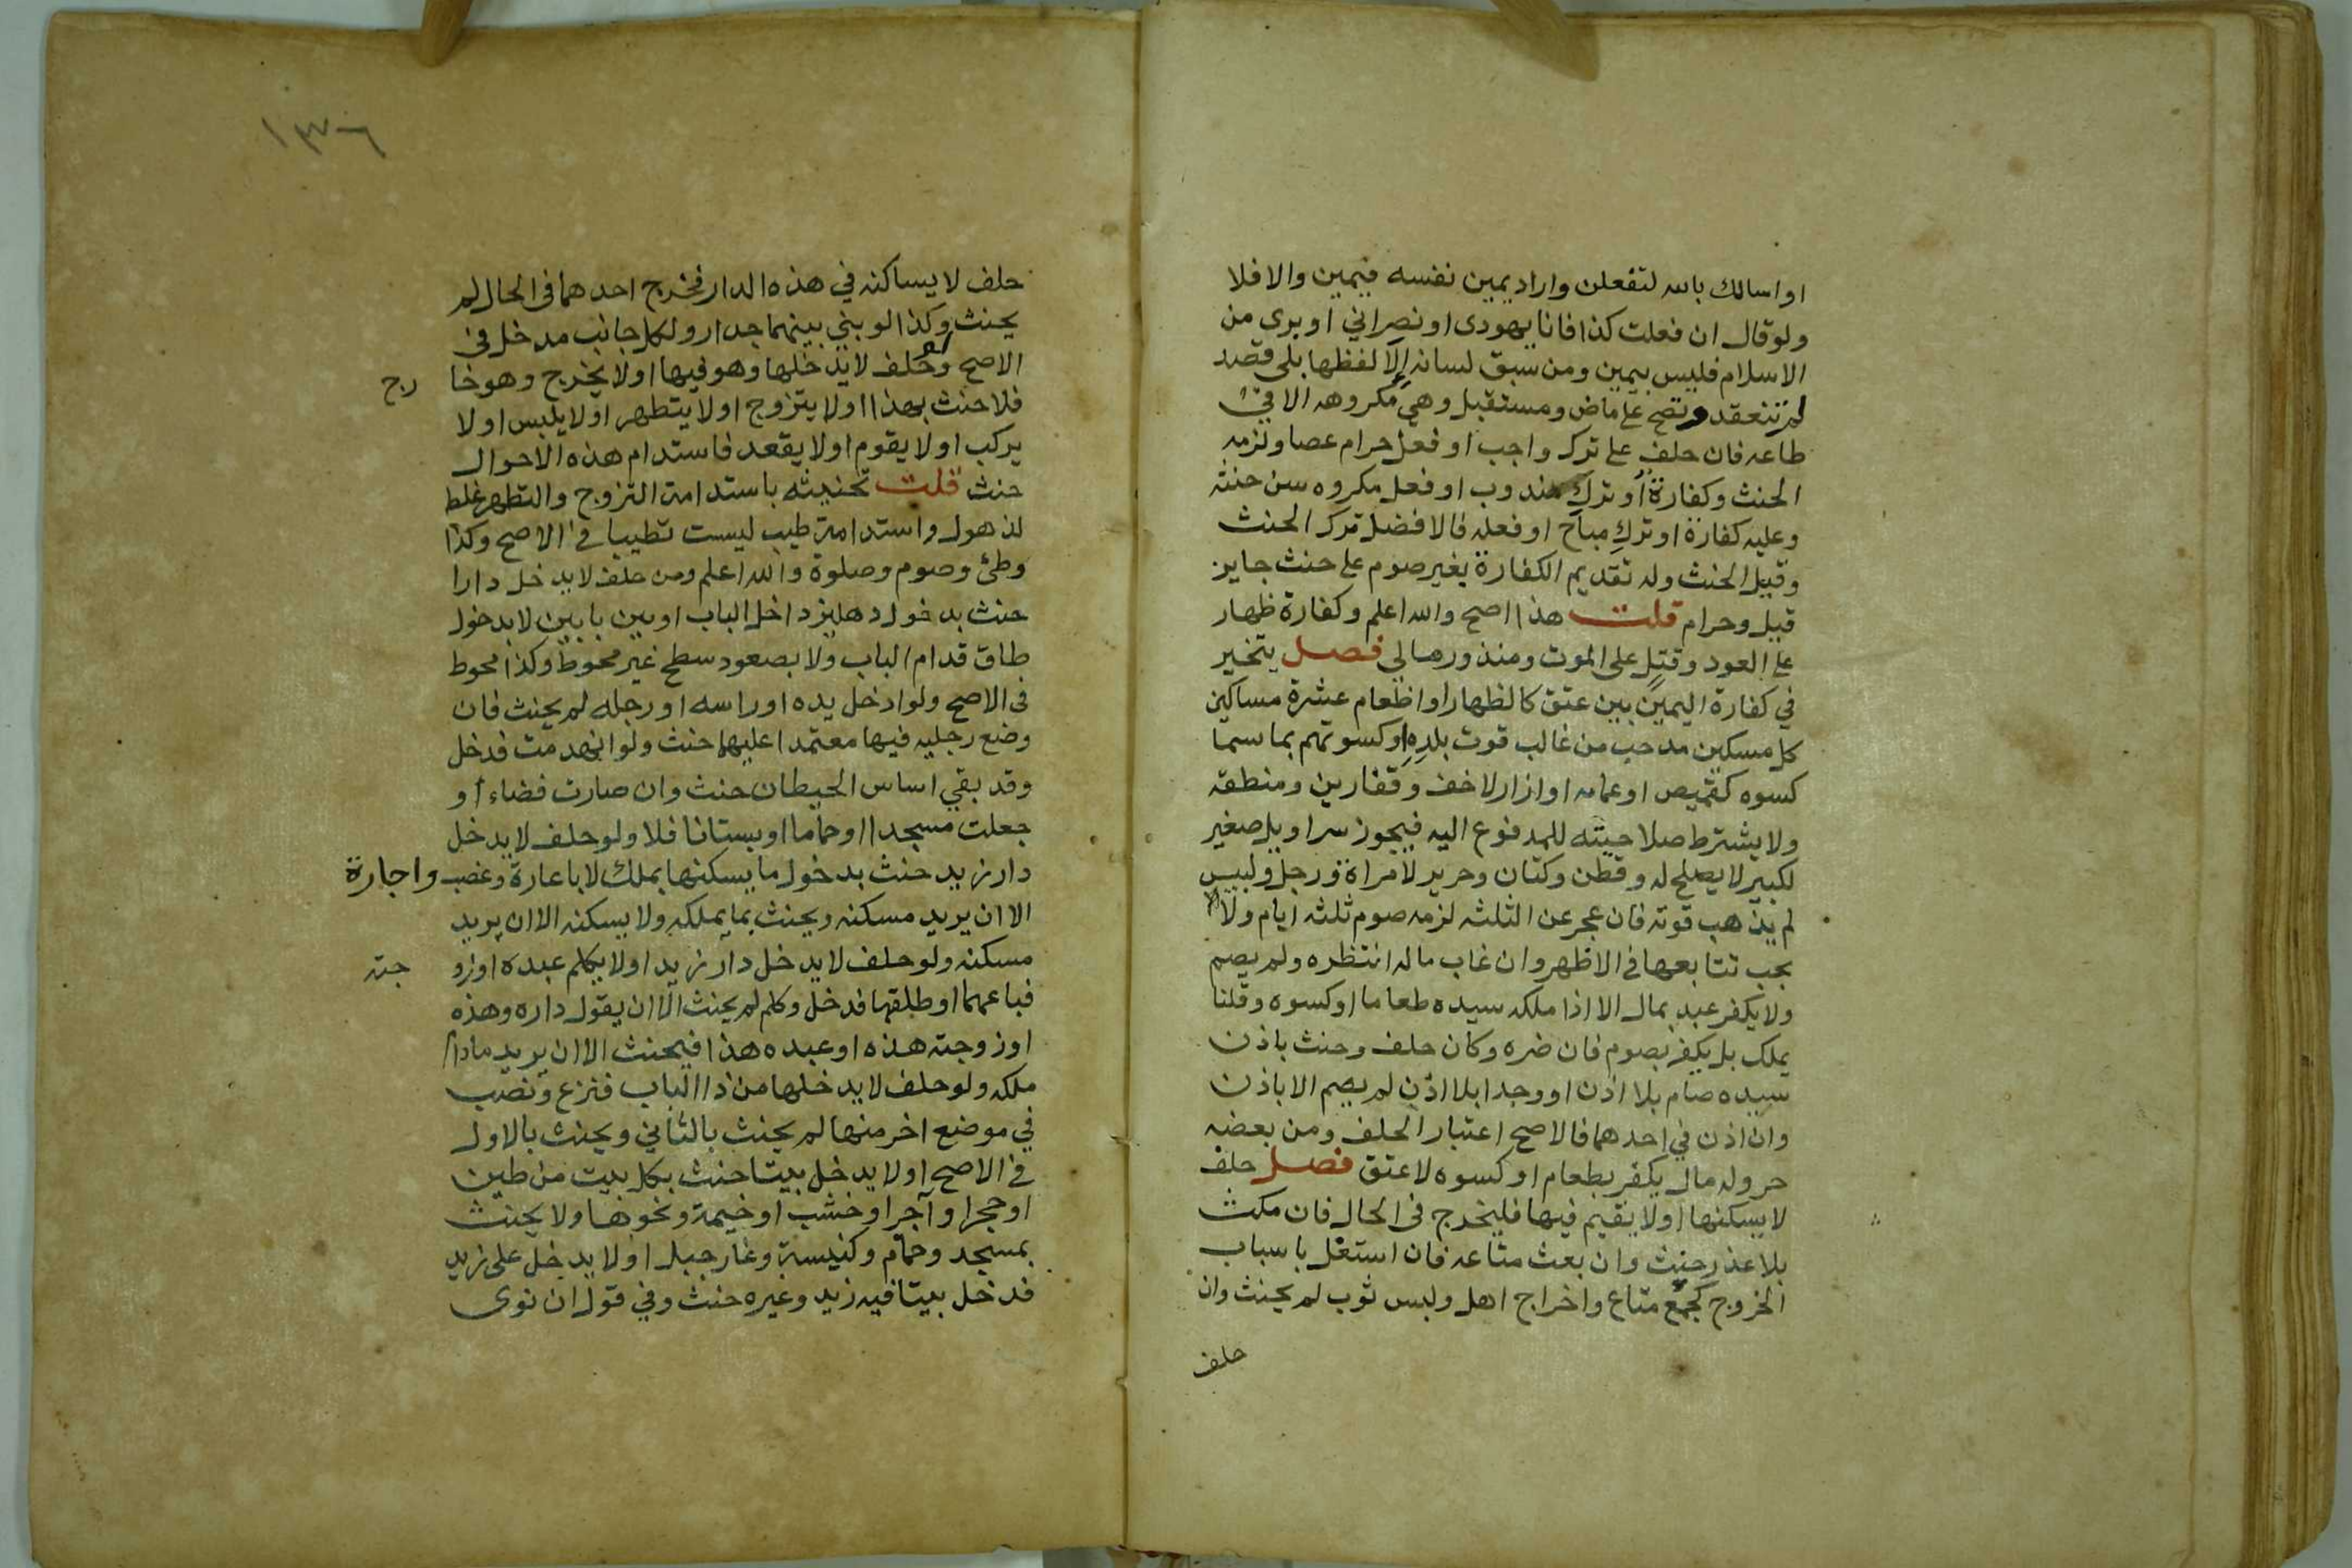 او اسالك بالله لتفعلن واراد يمين نفسه فيمين والا فلا
ولو قال ان فعلت كذا فانا يهودى او نصراني او برى من
الاسلام فليس بيمين ومن سبق لسانه الى لفظها بلى قصد
لم تنعقد وتصح على ماض ومستقبل وهي مكروهه الا فى
طاعه فان حلف على ترك واجب او فعل حرام عصا ولزمه
الحنث وكفارة أو ترك مندوب او فعل مكروه سن حنثه
وعليه كفارة او ترك مباح او فعله فالافضل ترك الحنث
وقيل الحنث وله تقديم الكفارة بغير صوم على حنث جايز
قيل وحرام قلت هذا اصح والله اعلم وكفارة ظهار
على العود وقتل على الموت ومنذور مالي فصل يتخير
في كفارة اليمين بين عتق كالظهار او اطعام عشرة مساكين
كل مسكين مد حب من غالب قوت بلده او كسوتهم بما سما
كسوه كقميص او عمامه او ازار لا خف وقفازين ومنطقه
ولا يشترط صلاحيته للمدفوع اليه فيجوز سراويل صغير
لكبير لا يصلح له وقطن وكتان وحرير لامراة ورجل ولبيس
لم يذهب قوته فان عجز عن الثلثه لزمه صوم ثلثه ايام ولا
يجب تتابعها فى الاظهر وان غاب ماله انتظره ولم يصم
ولا يكفر عبد بمال الا اذا ملكه سيده طعاما او كسوه وقلنا
يملك بل يكفر بصوم فان ضره وكان حلف وحنث باذن
سيده صام بلا اذن او وجدا بلا اذن لم يصم الا باذن
وان اذن في احدهما فالاصح اعتبار الحلف ومن بعضه
حر وله مال يكفر بطعام او كسوه لا عتق فصل حلف
لا يسكنها او لا يقيم فيها فليخرج فى الحال فان مكث
بلا عذر حنث وان بعث متاعه فان اشتغل باسباب
الخروج كجمع متاع واخراج اهل ولبس ثوب لم يحنث وان
حلف
١٣٦
حلف لا يساكنه في هذه الدار فخرج احدهما فى الحال لم
يحنث وكذا لو بني بينهما جدار ولكل جانب مدخل فى
الاصح ولو حلف لا يدخلها وهو فيها اولا يخرج وهو خا رج
فلا حنث بهذا اولا يتزوج اولا يتطهر اولا يلبس اولا
يركب اولا يقوم اولا يقعد فاستدام هذه الاحوال
حنث قلت تحنيثه باستدامة التزوج والتطهر غلط
لذهول واستدامة طيب ليست تطيبا فى الاصح وكذا
وطئ وصوم وصلوة والله اعلم ومن حلف لا يدخل دارا
حنث بدخول دهليز داخل الباب او بين بابين لا بدخول
طاق قدام الباب ولا بصعود سطح غير محوط وكذا محوط
فى الاصح ولو ادخل يده او راسه او رجله لم يحنث فان
وضع رجليه فيها معتمدا عليهما حنث ولو انهدمت فدخل
وقد بقي اساس الحيطان حنث وان صارت فضاء أو
جعلت مسجدا او حماما او بستانا فلا ولو حلف لا يدخل
دار زيد حنث بدخول ما يسكنها بملك لا باعارة وغصب واجارة
الا ان يريد مسكنه ويحنث بما يملكه ولا يسكنه الا ان يريد
مسكنه ولو حلف لا يدخل دار زيد اولا يكلم عبده او زو جته
فباعهما او طلقها فدخل وكلم لم يحنث الا ان يقول داره وهذه
او زوجته هذه او عبده هذا فيحنث الا ان يريد مادام
ملكه ولو حلف لا يدخلها من ذا الباب فنزع ونصب
في موضع اخر منها لم يحنث بالثاني ويحنث بالاول
فى الاصح اولا يدخل بيتا حنث بكل بيت من طين
او حجر او آجر او خشب او خيمة ونحوها ولا يحنث
بمسجد وحمام وكنيسة وغار جبل اولا يدخل على زيد
فدخل بيتا فيه زيد وغيره حنث وفي قول ان نوى